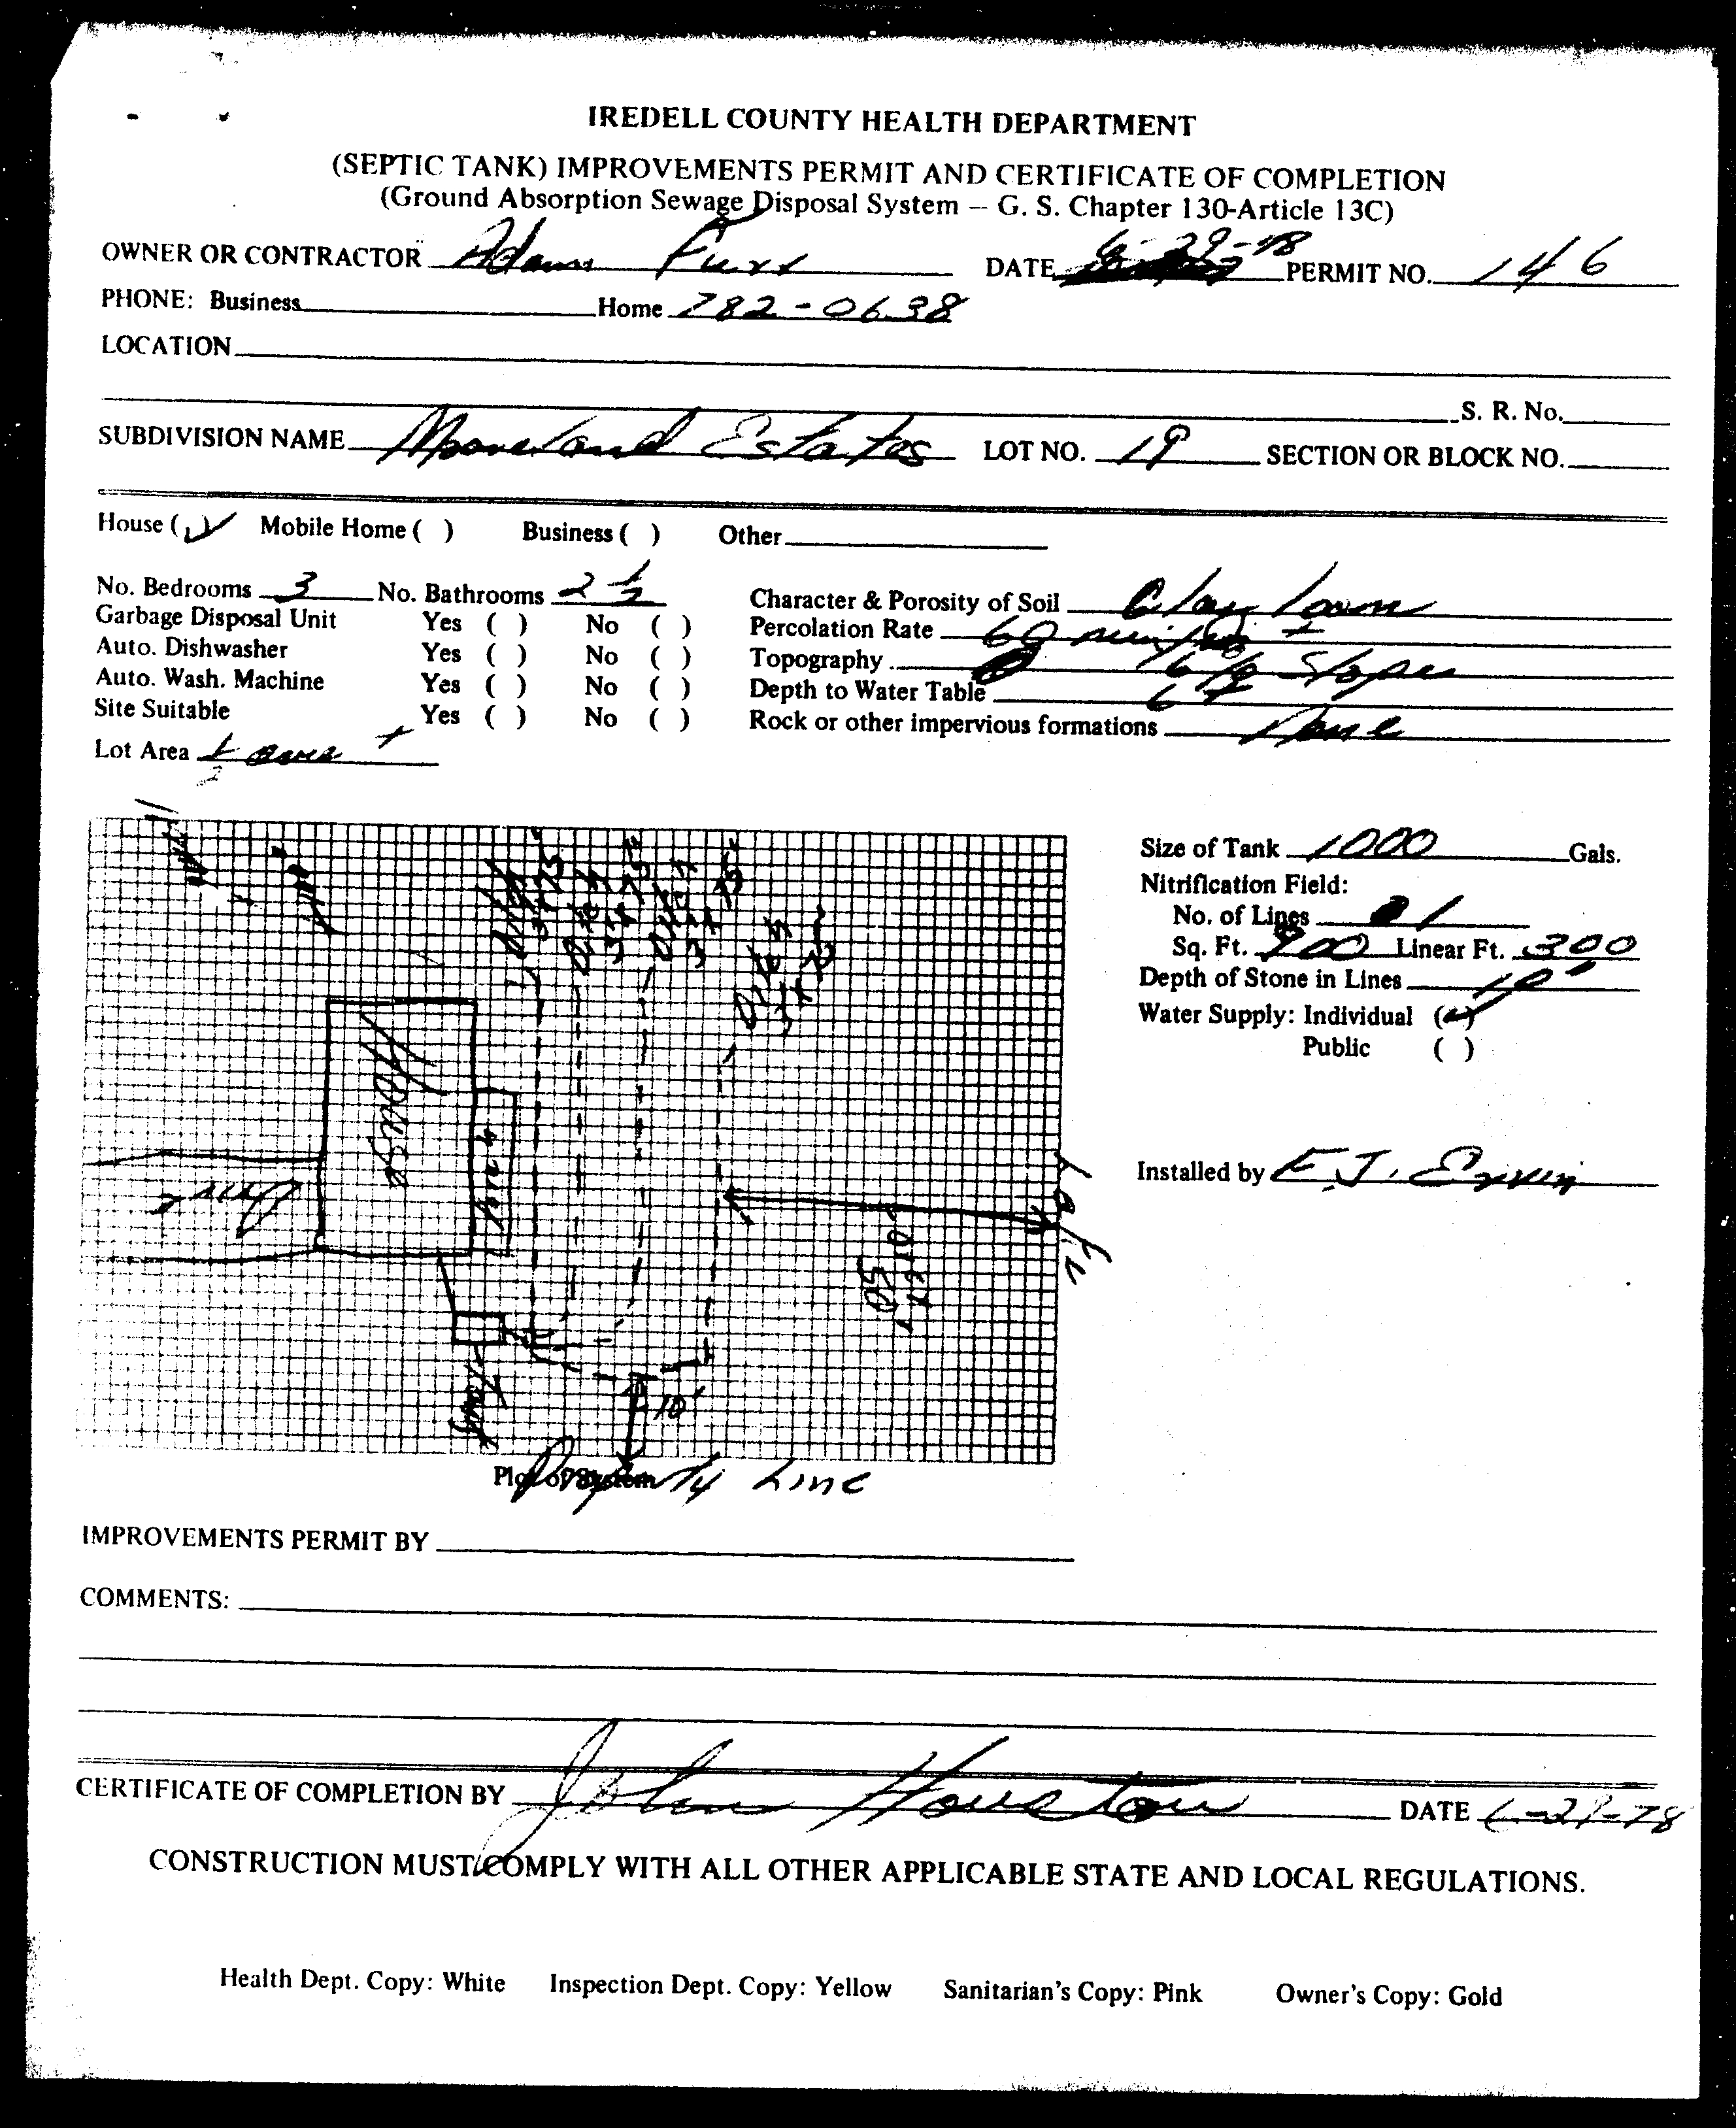 IREDELL COUNTY HEALTH DEPARTMENT
(SEPTIC TANK) IMPROVEMENTS PERMIT AND CERTIFICATE OF COMPLETION
(Ground Absorption Sewage Disposal System — G. S. Chapter 130-Article 13C)
OWNER OR CONTRACTOR Adam Furr DATE 6-29-78 PERMIT NO. 146
PHONE: Business Home 782-0638
LOCATION
S. R. No.
SUBDIVISION NAME Mooreland Estates LOT NO. 19 SECTION OR BLOCK NO.
House (✓) Mobile Home ( ) Business ( ) Other
No. Bedrooms 3 No. Bathrooms 2 1/2
Garbage Disposal Unit Yes ( ) No ( )
Auto. Dishwasher Yes ( ) No ( )
Auto. Wash. Machine Yes ( ) No ( )
Site Suitable Yes ( ) No ( )
Lot Area 1/2 acre +
Character & Porosity of Soil Clay loam
Percolation Rate 60 min/in +
Topography 6% Slope
Depth to Water Table 6 +
Rock or other impervious formations None
Size of Tank 1000 Gals.
Nitrification Field:
No. of Lines 1
Sq. Ft. 900 Linear Ft. 300
Depth of Stone in Lines 10"
Water Supply: Individual (✓)
Public ( )
Installed by E. J. Ervin
Ditch
3x75'
Ditch
3x75'
Ditch
3x75'
Ditch
3x75'
House
Drive
Tank
Over
50
FT
Lake
10'
Plot of System
Property Line
IMPROVEMENTS PERMIT BY
COMMENTS:
CERTIFICATE OF COMPLETION BY John Houston DATE 6-29-78
CONSTRUCTION MUST COMPLY WITH ALL OTHER APPLICABLE STATE AND LOCAL REGULATIONS.
Health Dept. Copy: White Inspection Dept. Copy: Yellow Sanitarian's Copy: Pink Owner's Copy: Gold